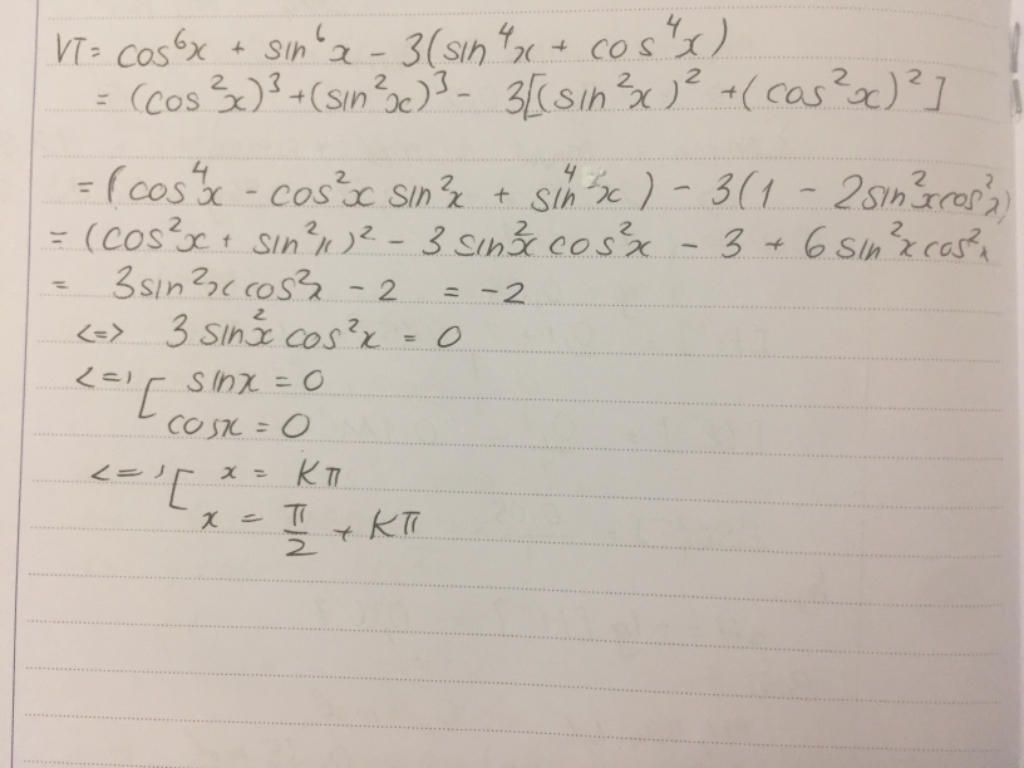 VT = cos⁶x + sin⁶x - 3(sin⁴x + cos⁴x)
= (cos²x)³ + (sin²x)³ - 3[(sin²x)² + (cos²x)²]
= (cos⁴x - cos²x sin²x + sin⁴x) - 3(1 - 2sin²xcos²x)
= (cos²x + sin²x)² - 3sin²x cos²x - 3 + 6sin²x cos²x
= 3sin²x cos²x - 2 = -2
<=> 3sin²x cos²x = 0
<=> [ sinx = 0
cosx = 0
<=> [ x = Kπ
x = π/2 + Kπ